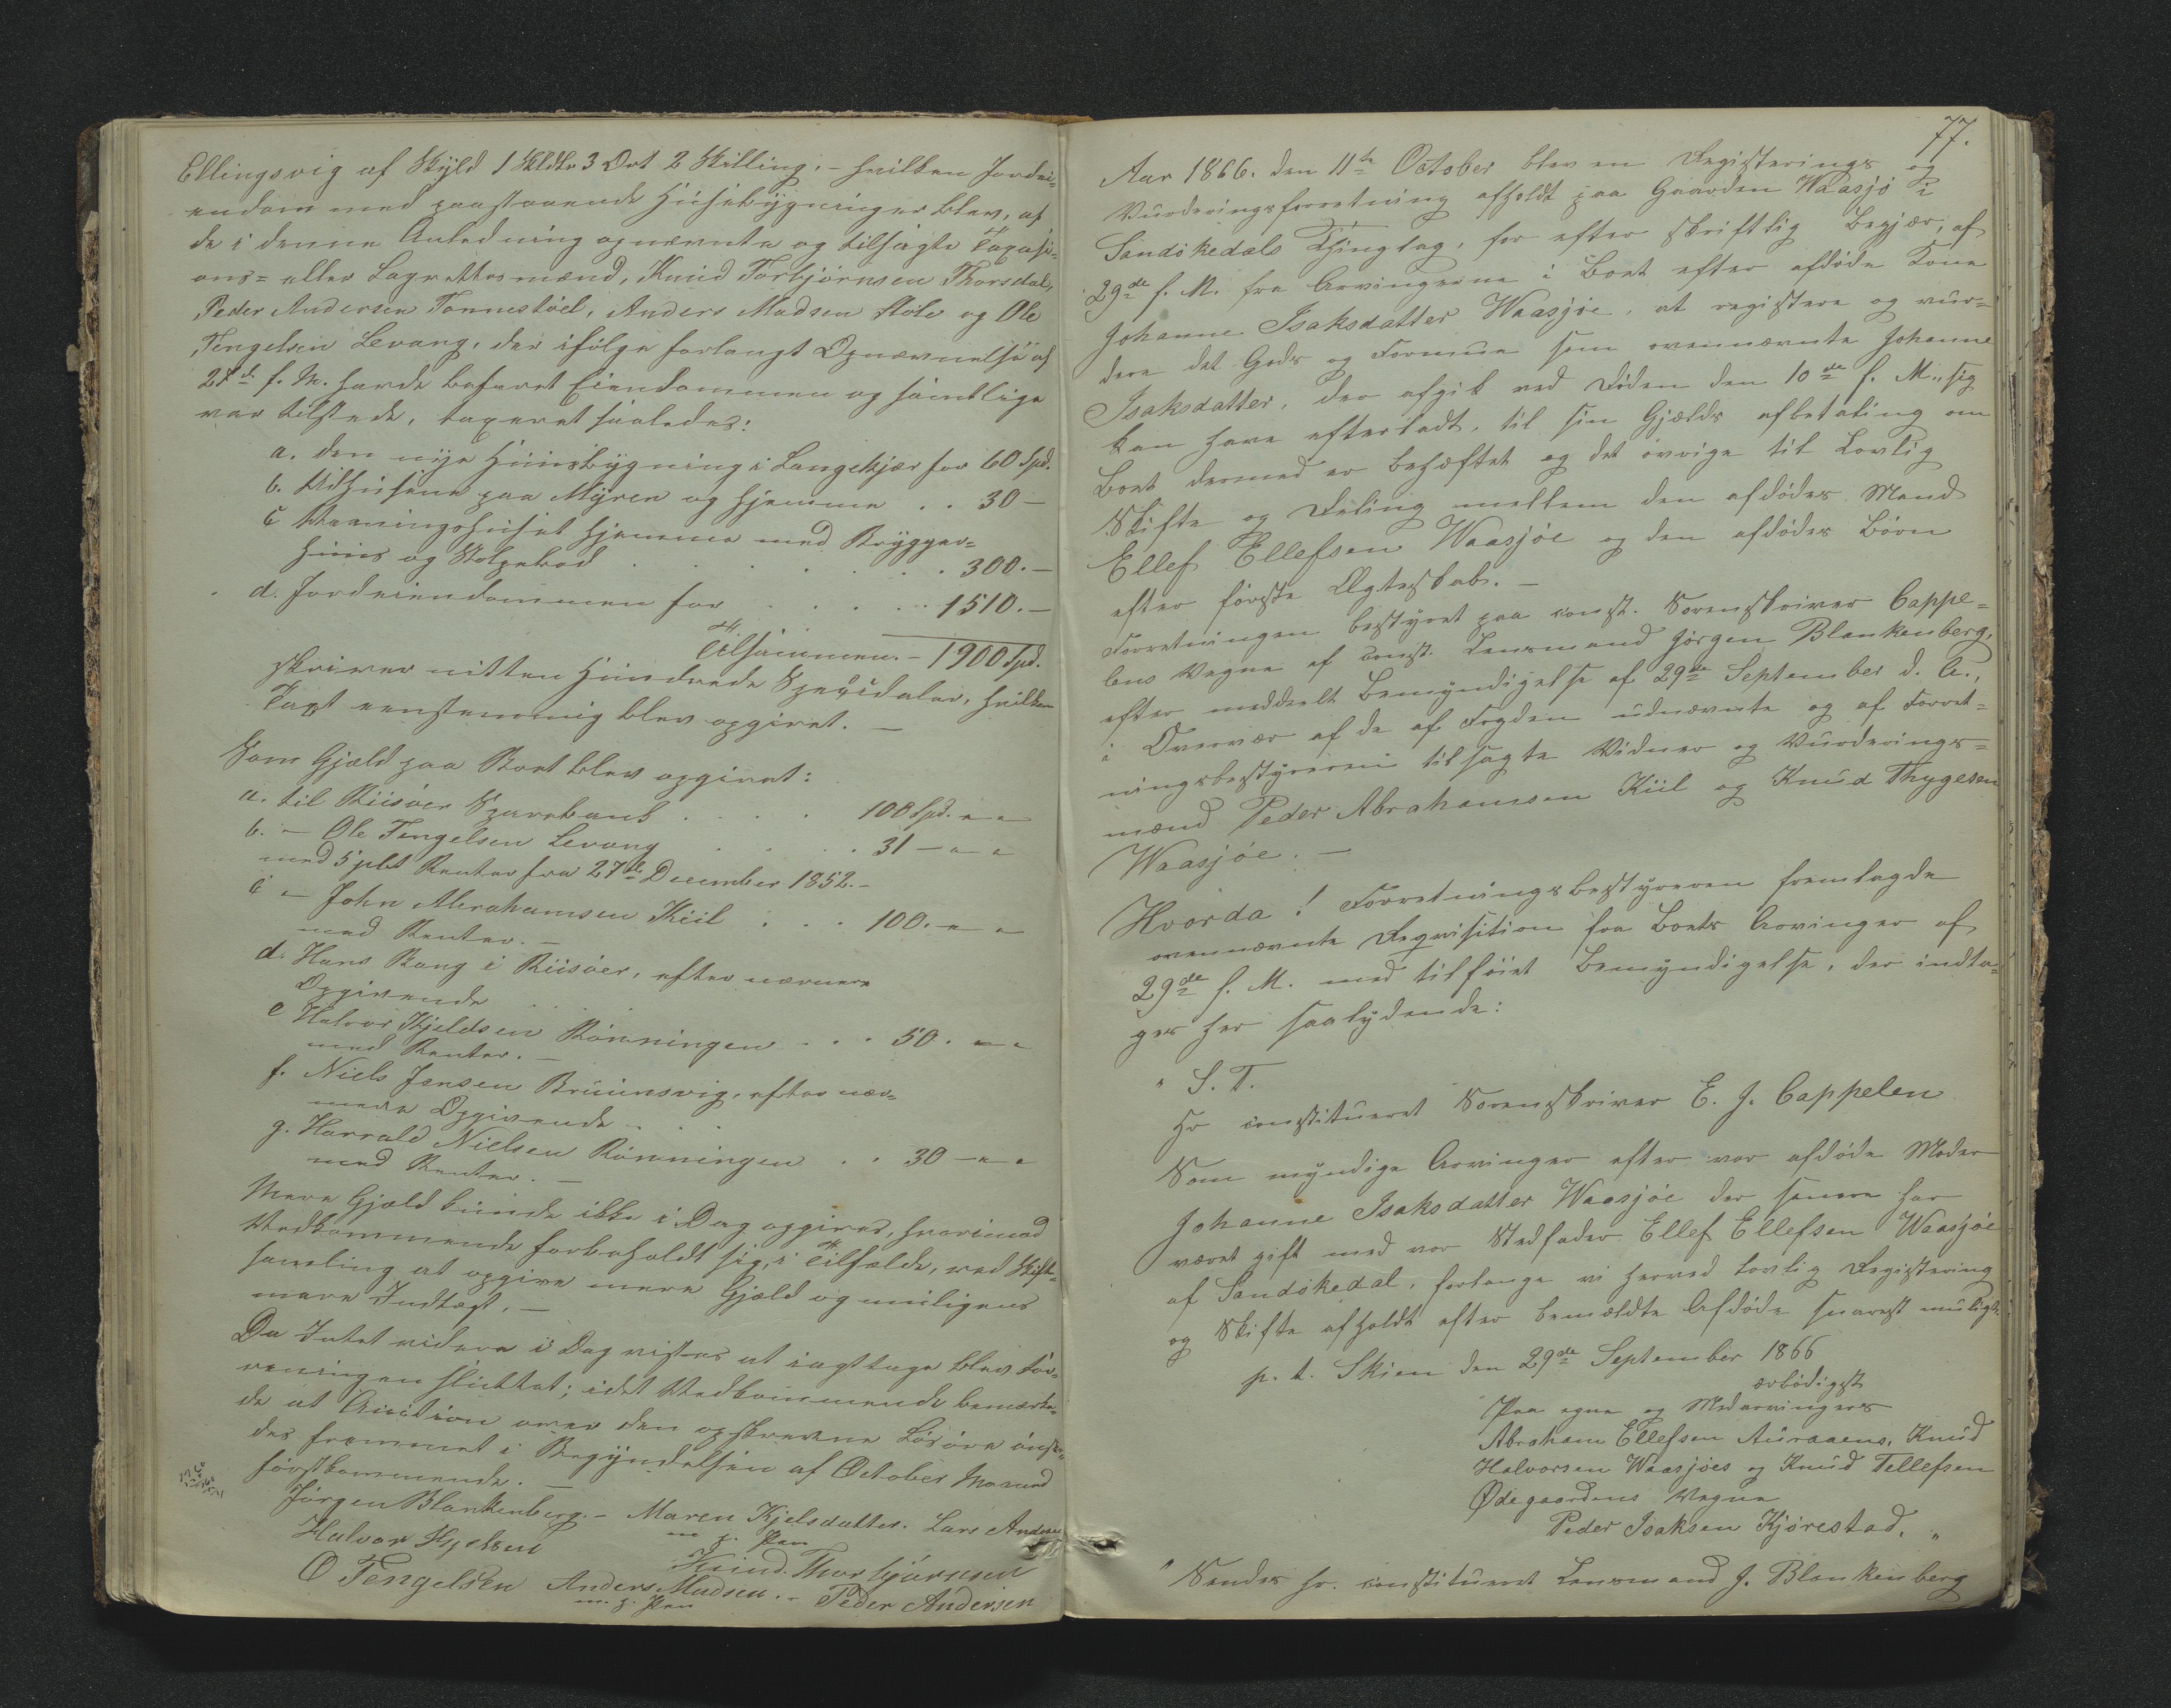 Ellingsvig af Skyld 1 Skldlr 3 Ort 2 Skilling, - hvilken Jordei=
endom med paastaaende Huusebygninger blev, af
de i denne Anledning opnævnte og tilsagte Taxasi=
ons= eller Lagrettesmænd, Knud Torbjørnsen Thorsdal,
Peder Andersen Tonnestøel, Anders Madsen Støle og Ole
Tengelsen Levang, der ifølge forlangt Opnævnelse af
28de f. M. havde befaret Eiendommen og samtlige
var tilstede, taxeret saaledes:
a. den nye Huusbygning i Langekjær for 60 Spd.
b. Udhusene paa Myren og hjemme . . 30 -
c Vaaningshuset hjemme med Brygger=
huus og Stolpebod . . . . . . . 300. -
d. Jordeiendommen for . . . . . 1510. -
Tilsammen. - 1900 Spd.
skriver nitten Hundrede Speciedaler, hvilken
Taxt eenstemmig blev opgivet. -
Som Gjæld paa Boet blev opgivet:
a. til Riisøer Sparebank . . . . 100 Spd. " "
b. - Ole Tengelsen Levang . . . 31 - " "
med 5 pCt Renter fra 27de December 1852. -
c - John Abrahamsen Kiil . . . 100. - " "
med Renter. -
d. Hans Bang i Riisøer, efter nærmere
Opgivende . . .
e Halvor Kjeldsen Rønningen . . . 50. - " "
med Renter. -
f. Niels Jensen Bruunsvig, efter nær=
mere Opgivende . . .
g. Harrald Nielsen Rønningen . . 30 - " "
med Renter. -
Mere Gjæld kunde ikke i Dag opgives, hvorimod
Vedkommende forbeholdt sig, i Tilfælde, ved Skifte=
samling at opgive mere Gjæld og muligens
mere Indtægt. -
Da Intet videre i Dag vistes at iagttage blev For=
retningen sluttet; idet Vedkommende bemærke=
de at Auction over den opskrevne Løsøre ønske=
des fremmet i Begyndelsen af October Maaned
førstkommende. -
Jørgen Blankenberg. - Maren Kjelsdatter. Lars Andersen
m. p. Pen
Halvor Kjelsen
Knud Thorbjørnsen
O Tengelsen Anders Madsen. - Peder Andersen
m. p. Pen
77.
Aar 1866. den 11te October blev en Registerings og
Vurderingsforretning afholdt paa Gaarden Waasjø i
Sandøkedals Thinglag, for efter skriftlig Begjær, af
29de f. M. fra Arvingerne i Boet efter afdøde Kone
Johanne Isaksdatter Waasjøe, at registere og vur=
dere det Gods og Formue som ovennævnte Johanne
Isaksdatter, der afgik ved Døden den 10de f. M., sig
kan have efterladt, til sin Gjælds afbetaling om
Boet dermed er behæftet og det øvrige til Lovlig
Skifte og Deling mellem den afdødes Mand
Ellef Ellefsen Waasjøe og den afdødes Børn
efter første Ægteskab. -
Forretningen bestyret paa const. Sorenskriver Cappe=
lens Vegne af const. Lensmand Jørgen Blankenberg,
efter meddeelt Bemyndigelse af 29de September d. A.,
i Overvær af de af Fogden udnævnte og af Forret=
ningsbestyreren tilsagte Vidner og Vurderings=
mænd Peder Abrahamsen Kiil og Knud Thygesen
Waasjøe. -
Hvorda! Forretningsbestyreren fremlagde
ovennævnte Reqvisition fra Boets Arvinger af
29de f. M. med tilføiet Bemyndigelse, der indta=
ges her saalydende:
" S. T.
Hr constitueret Sorenskriver E. J. Cappelen
Som myndige Arvinger efter vor afdøde Moder
Johanne Isaksdatter Waasjøe der senere har
været gift med vor Stedfader Ellef Ellefsen Waasjøe
af Sandøkedal, forlange vi herved lovlig Registering
og Skifte afholdt efter bemældte Afdøde snarest muligt.
p. t. Skien den 29de September 1866
ærbødigst
Paa egne og Medarvingers
Abraham Ellefsen Auraaens, Knud
Halvorsen Waasjøes og Knud Tellefsen
Ødegaardens Vegne
Peder Isaksen Kjørestad. "
" Sendes Hr. constitueret Lensmand J. Blankenberg